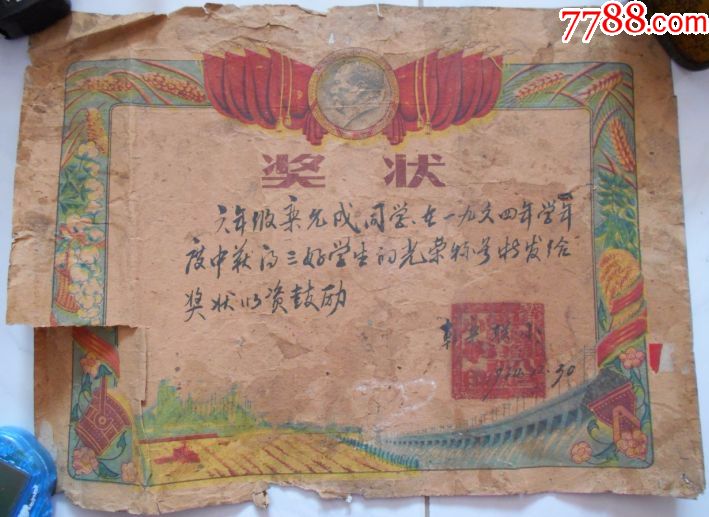 7788.com
奖状
六年级乘允成同学,在一九六四年学年
度中获得三好学生的光荣称号特发给
奖状以资鼓励
联小
12.30